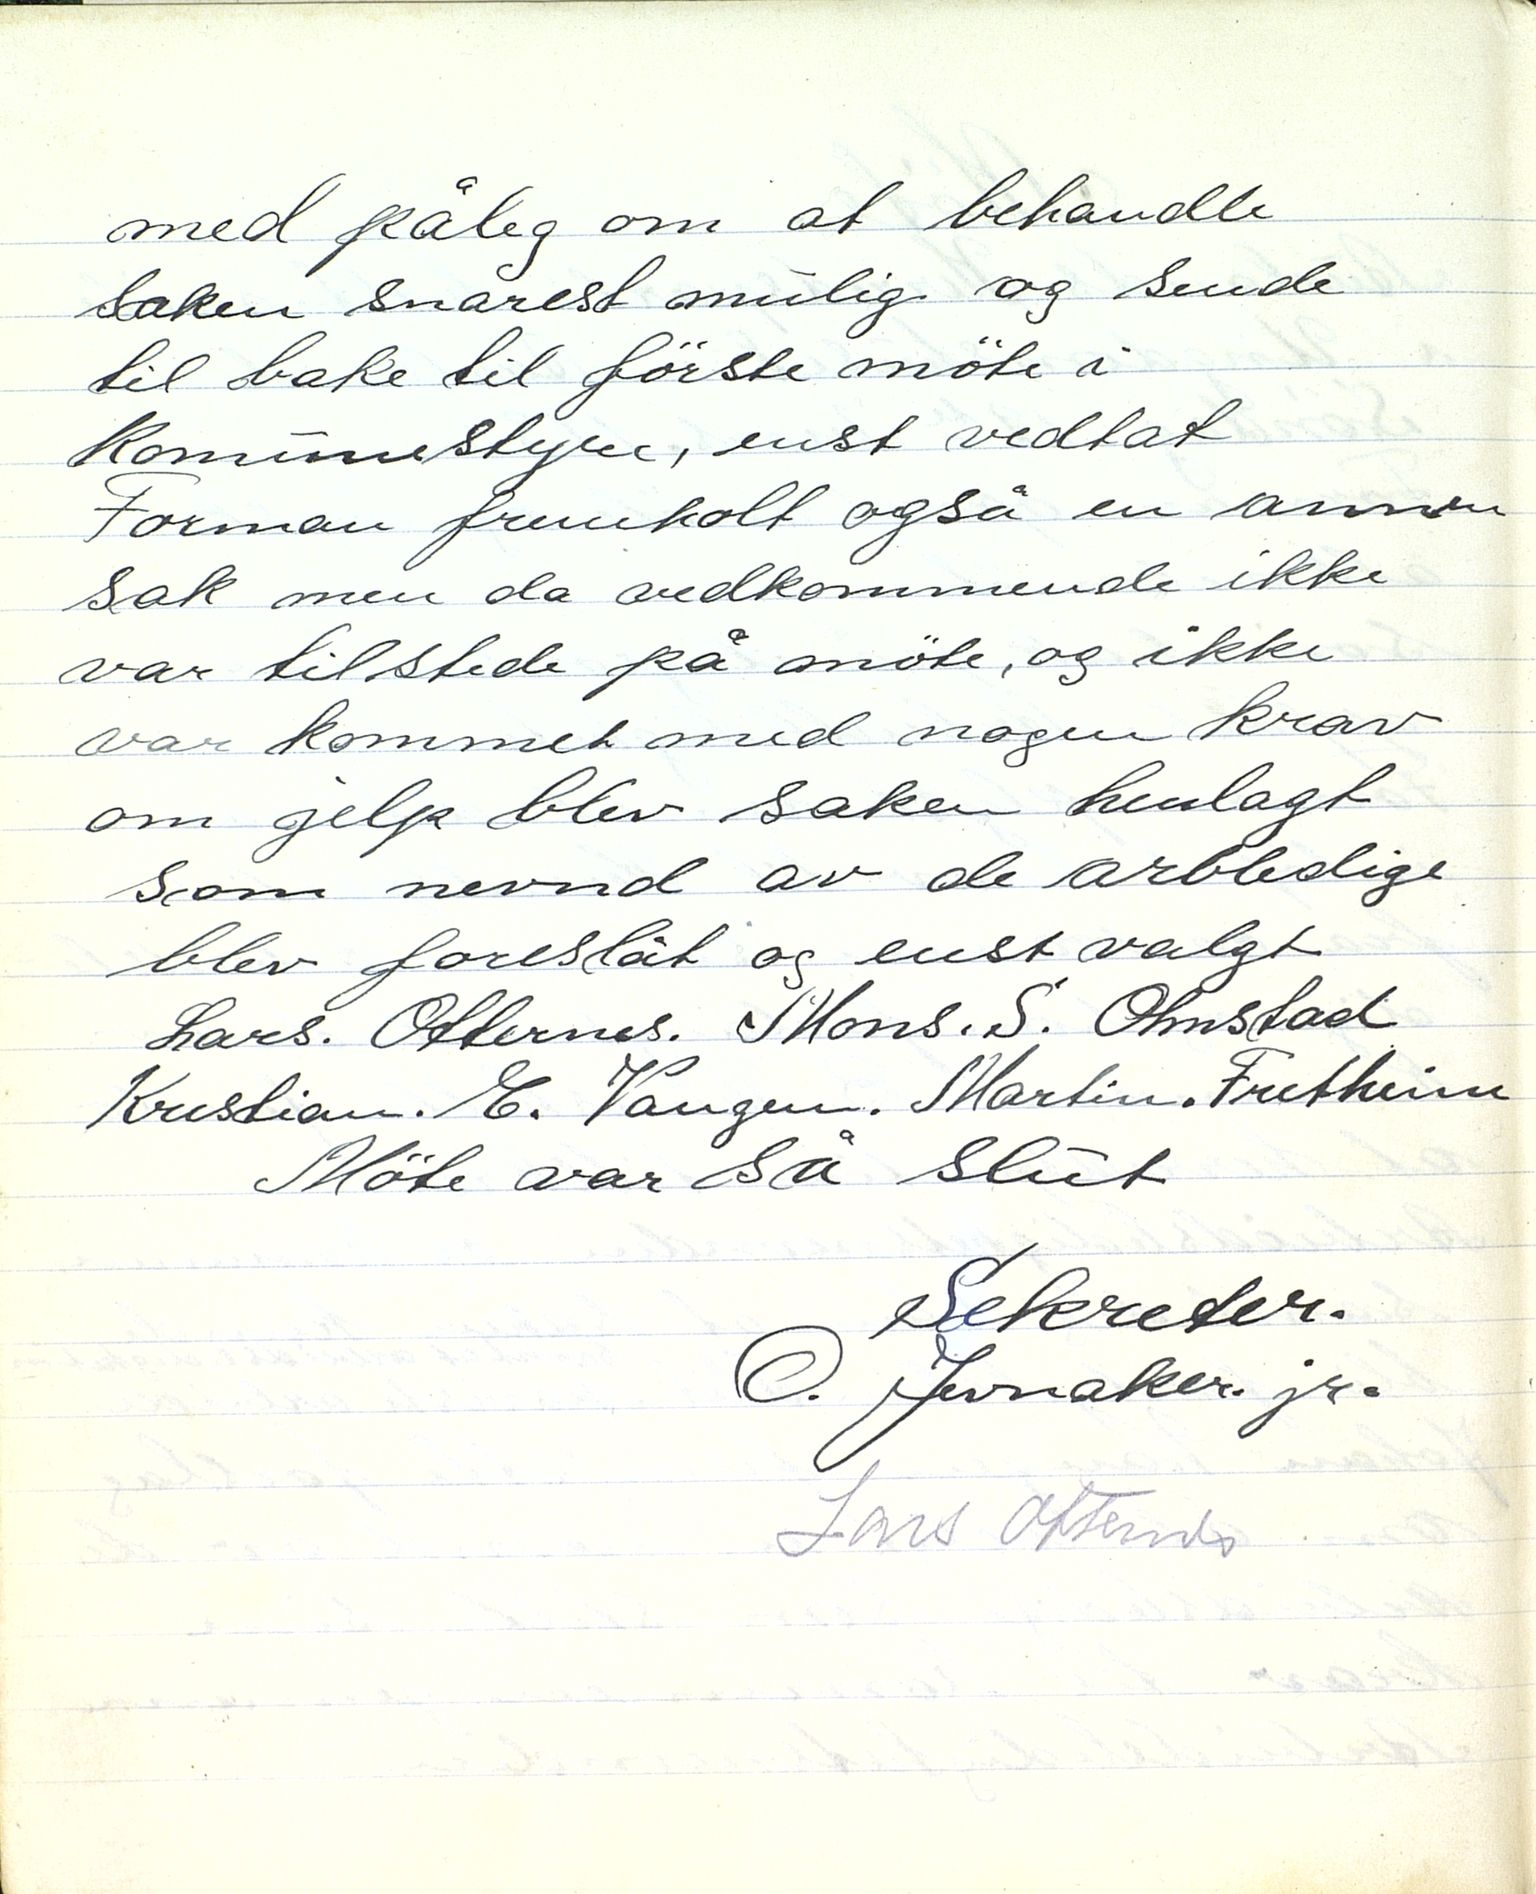 med påleg om at behandle
saken snarest mulig og sende
til bake til förste möte i
Kommunestyre, enst vedtat
Forman fremholt også en annen
sak men da vedkommende ikke
var tilstede på möte, og ikke
var kommet med nogen krav
om jelp blev saken henlagt
som nevnd av de arbledige
blev foreslåt og enst valgt
Lars. Otternes. Mons. S. Ohnstad
Kristian. E. Vangen. Martin. Fretheim
Möte var så slut
Sekreter.
O. Jevnaker. jr.
Lars Otternes